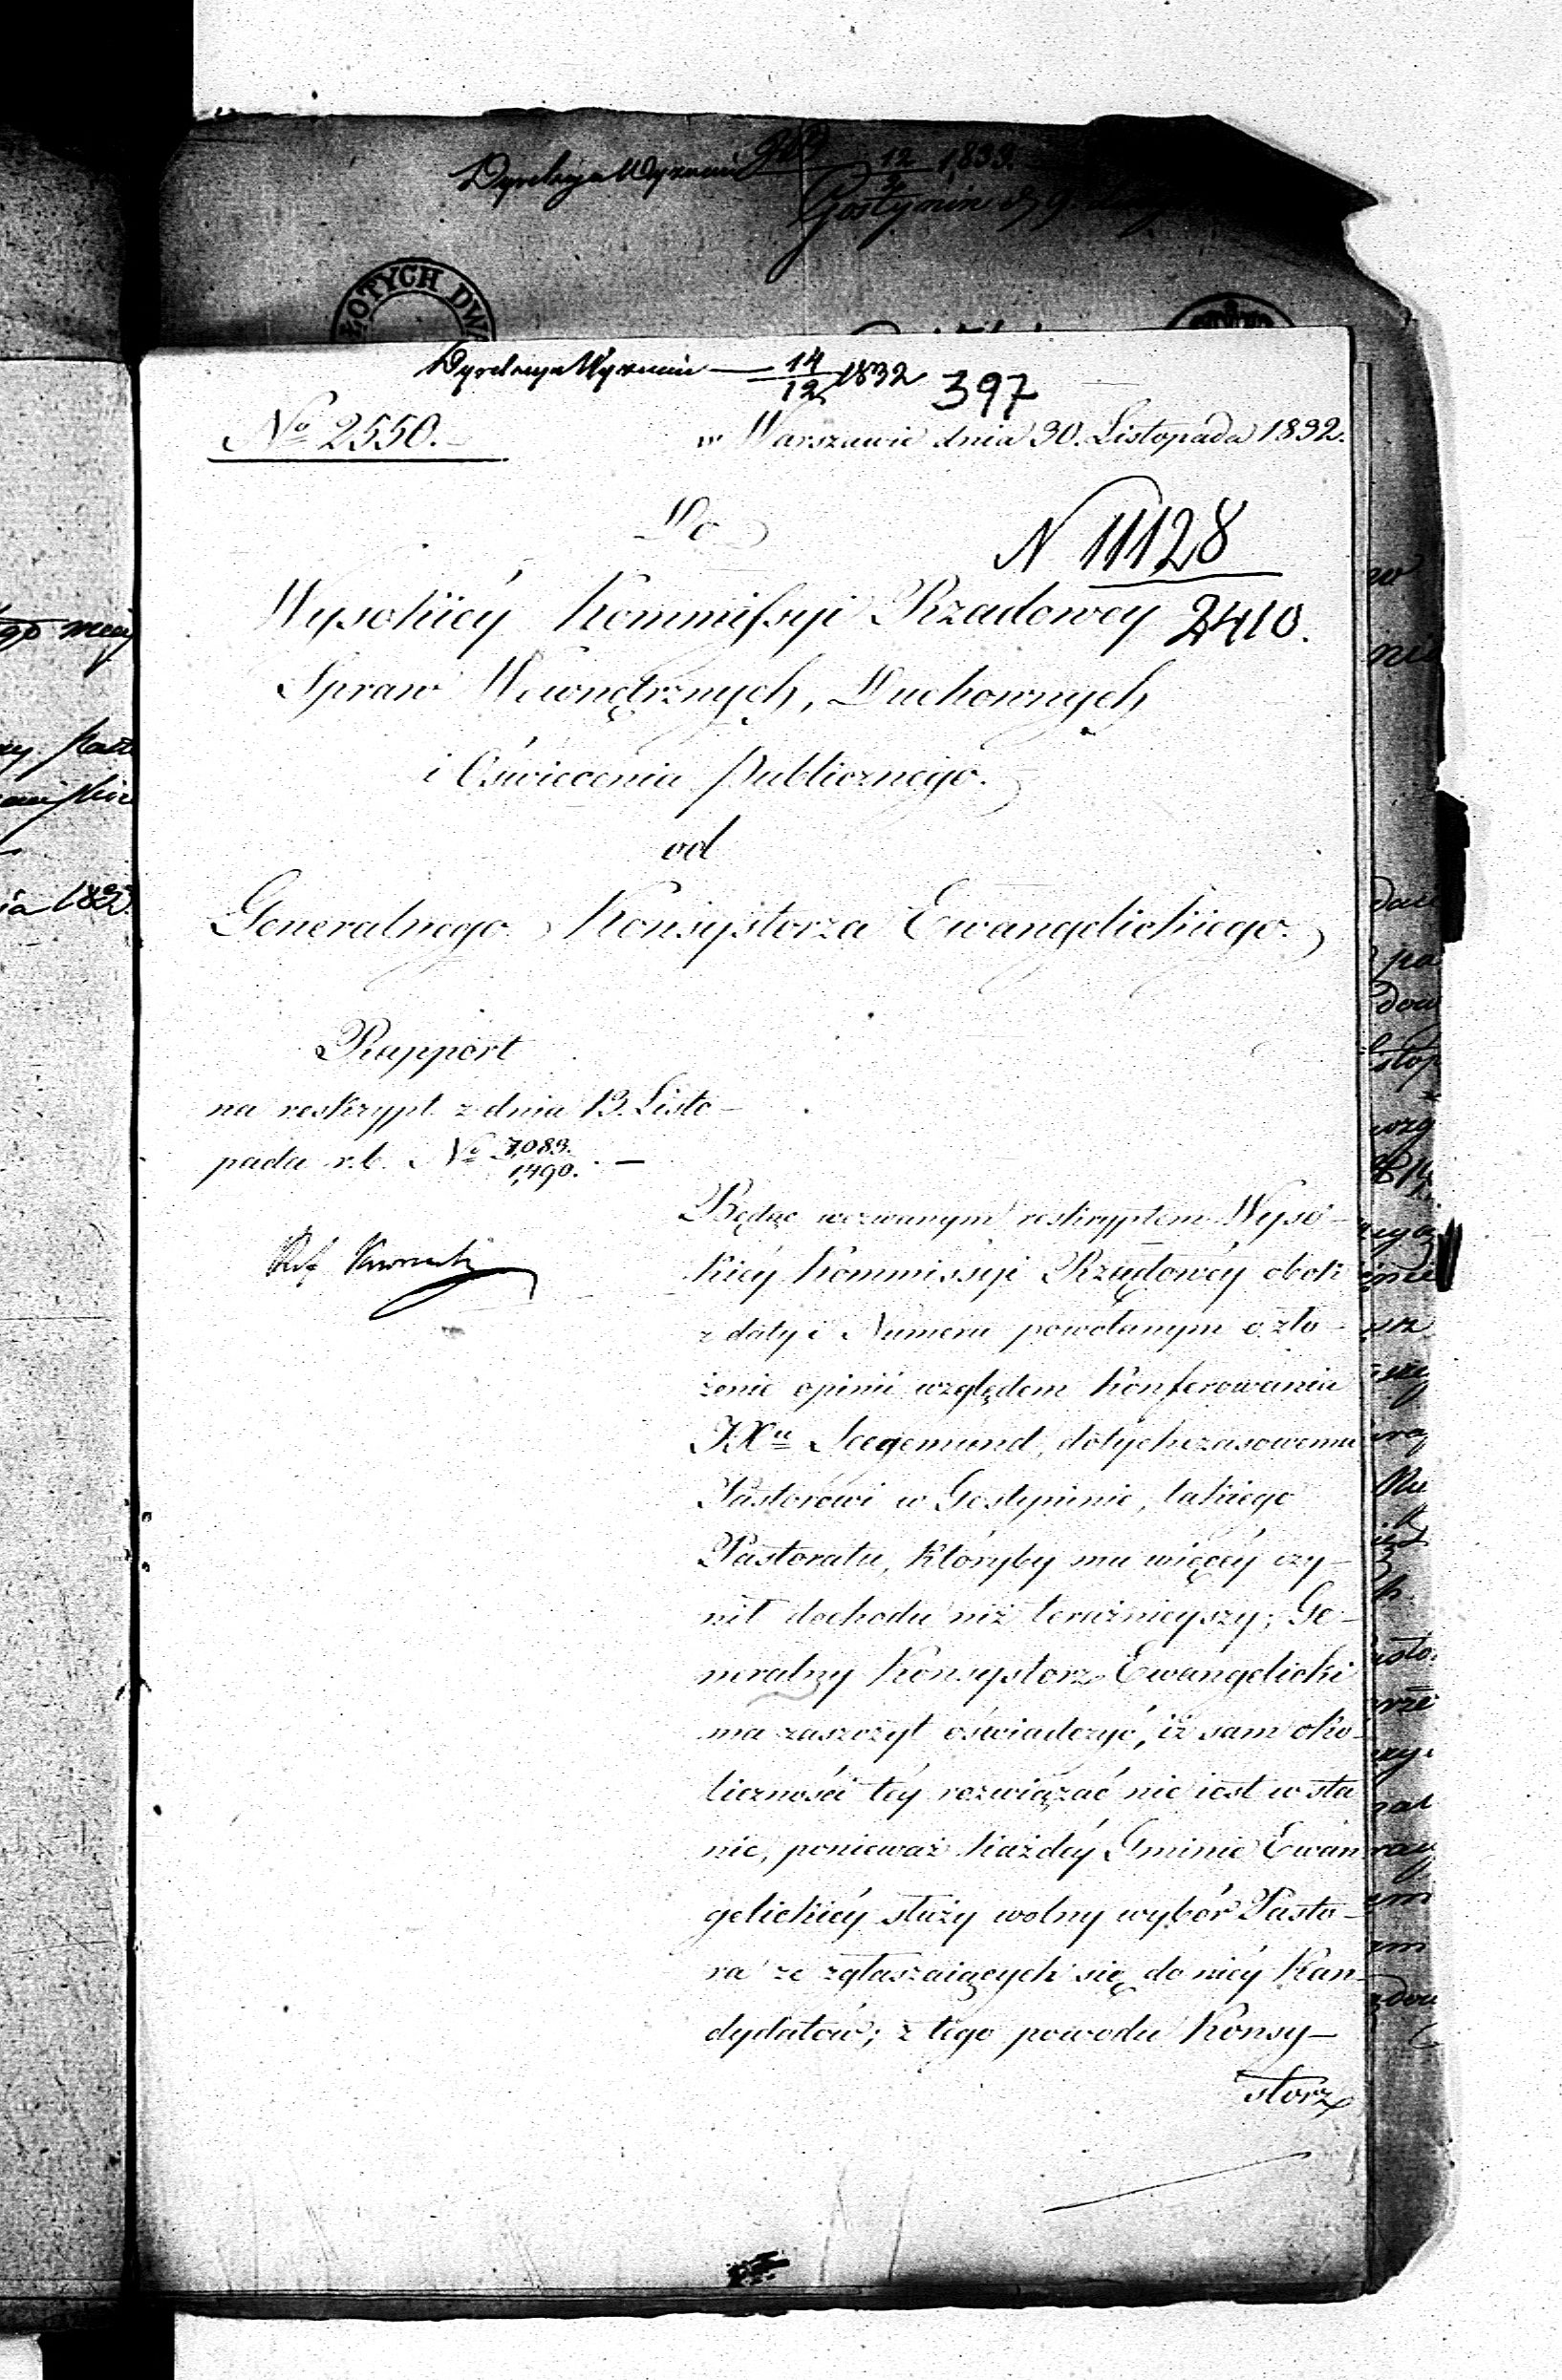 Dyrekcya Wyznań 12 1833.
Gostynin d. 9
ZŁOTYCH DW
Dyrekcya Wyznań — 14/12 1832 397
No 2550.
w Warszawie dnia 30. Listopada 1832.
Do
N 11128
Wysokiéy Kommissyi Rządowéy 2410.
Spraw Wewnętrznych, Duchownych
i Oświecenia Publicznego.
od
Generalnego Konsystorza Ewangelickiego.
Rapport
na reskrypt z dnia 13. Listo-
pada r. b. No 7,083./1,490. —
Będąc wezwanym reskryptem Wyso-
kiéy Kommissyi Rządowéy obok
z daty i Numeru powołanym o zło-
żenie opinii względem konferowania
JXu Seegemund, dotychczasowemu
Pastorowi w Gostyninie, takiego
Pastoratu, któryby mu więcéy czy-
nił dochodu niż teraźnieyszy; Ge-
neralny Konsystorz Ewangelicki
ma zaszczyt oświadczyć, iż sam oko-
liczności téy rozwiązać nie iest w sta
nie, ponieważ każdéy Gminie Ewan
gelickiéy służy wolny wybór Pasto-
ra ze zgłaszaiących się do niéy Kan-
dydatów; z tego powodu Konsy-
storz